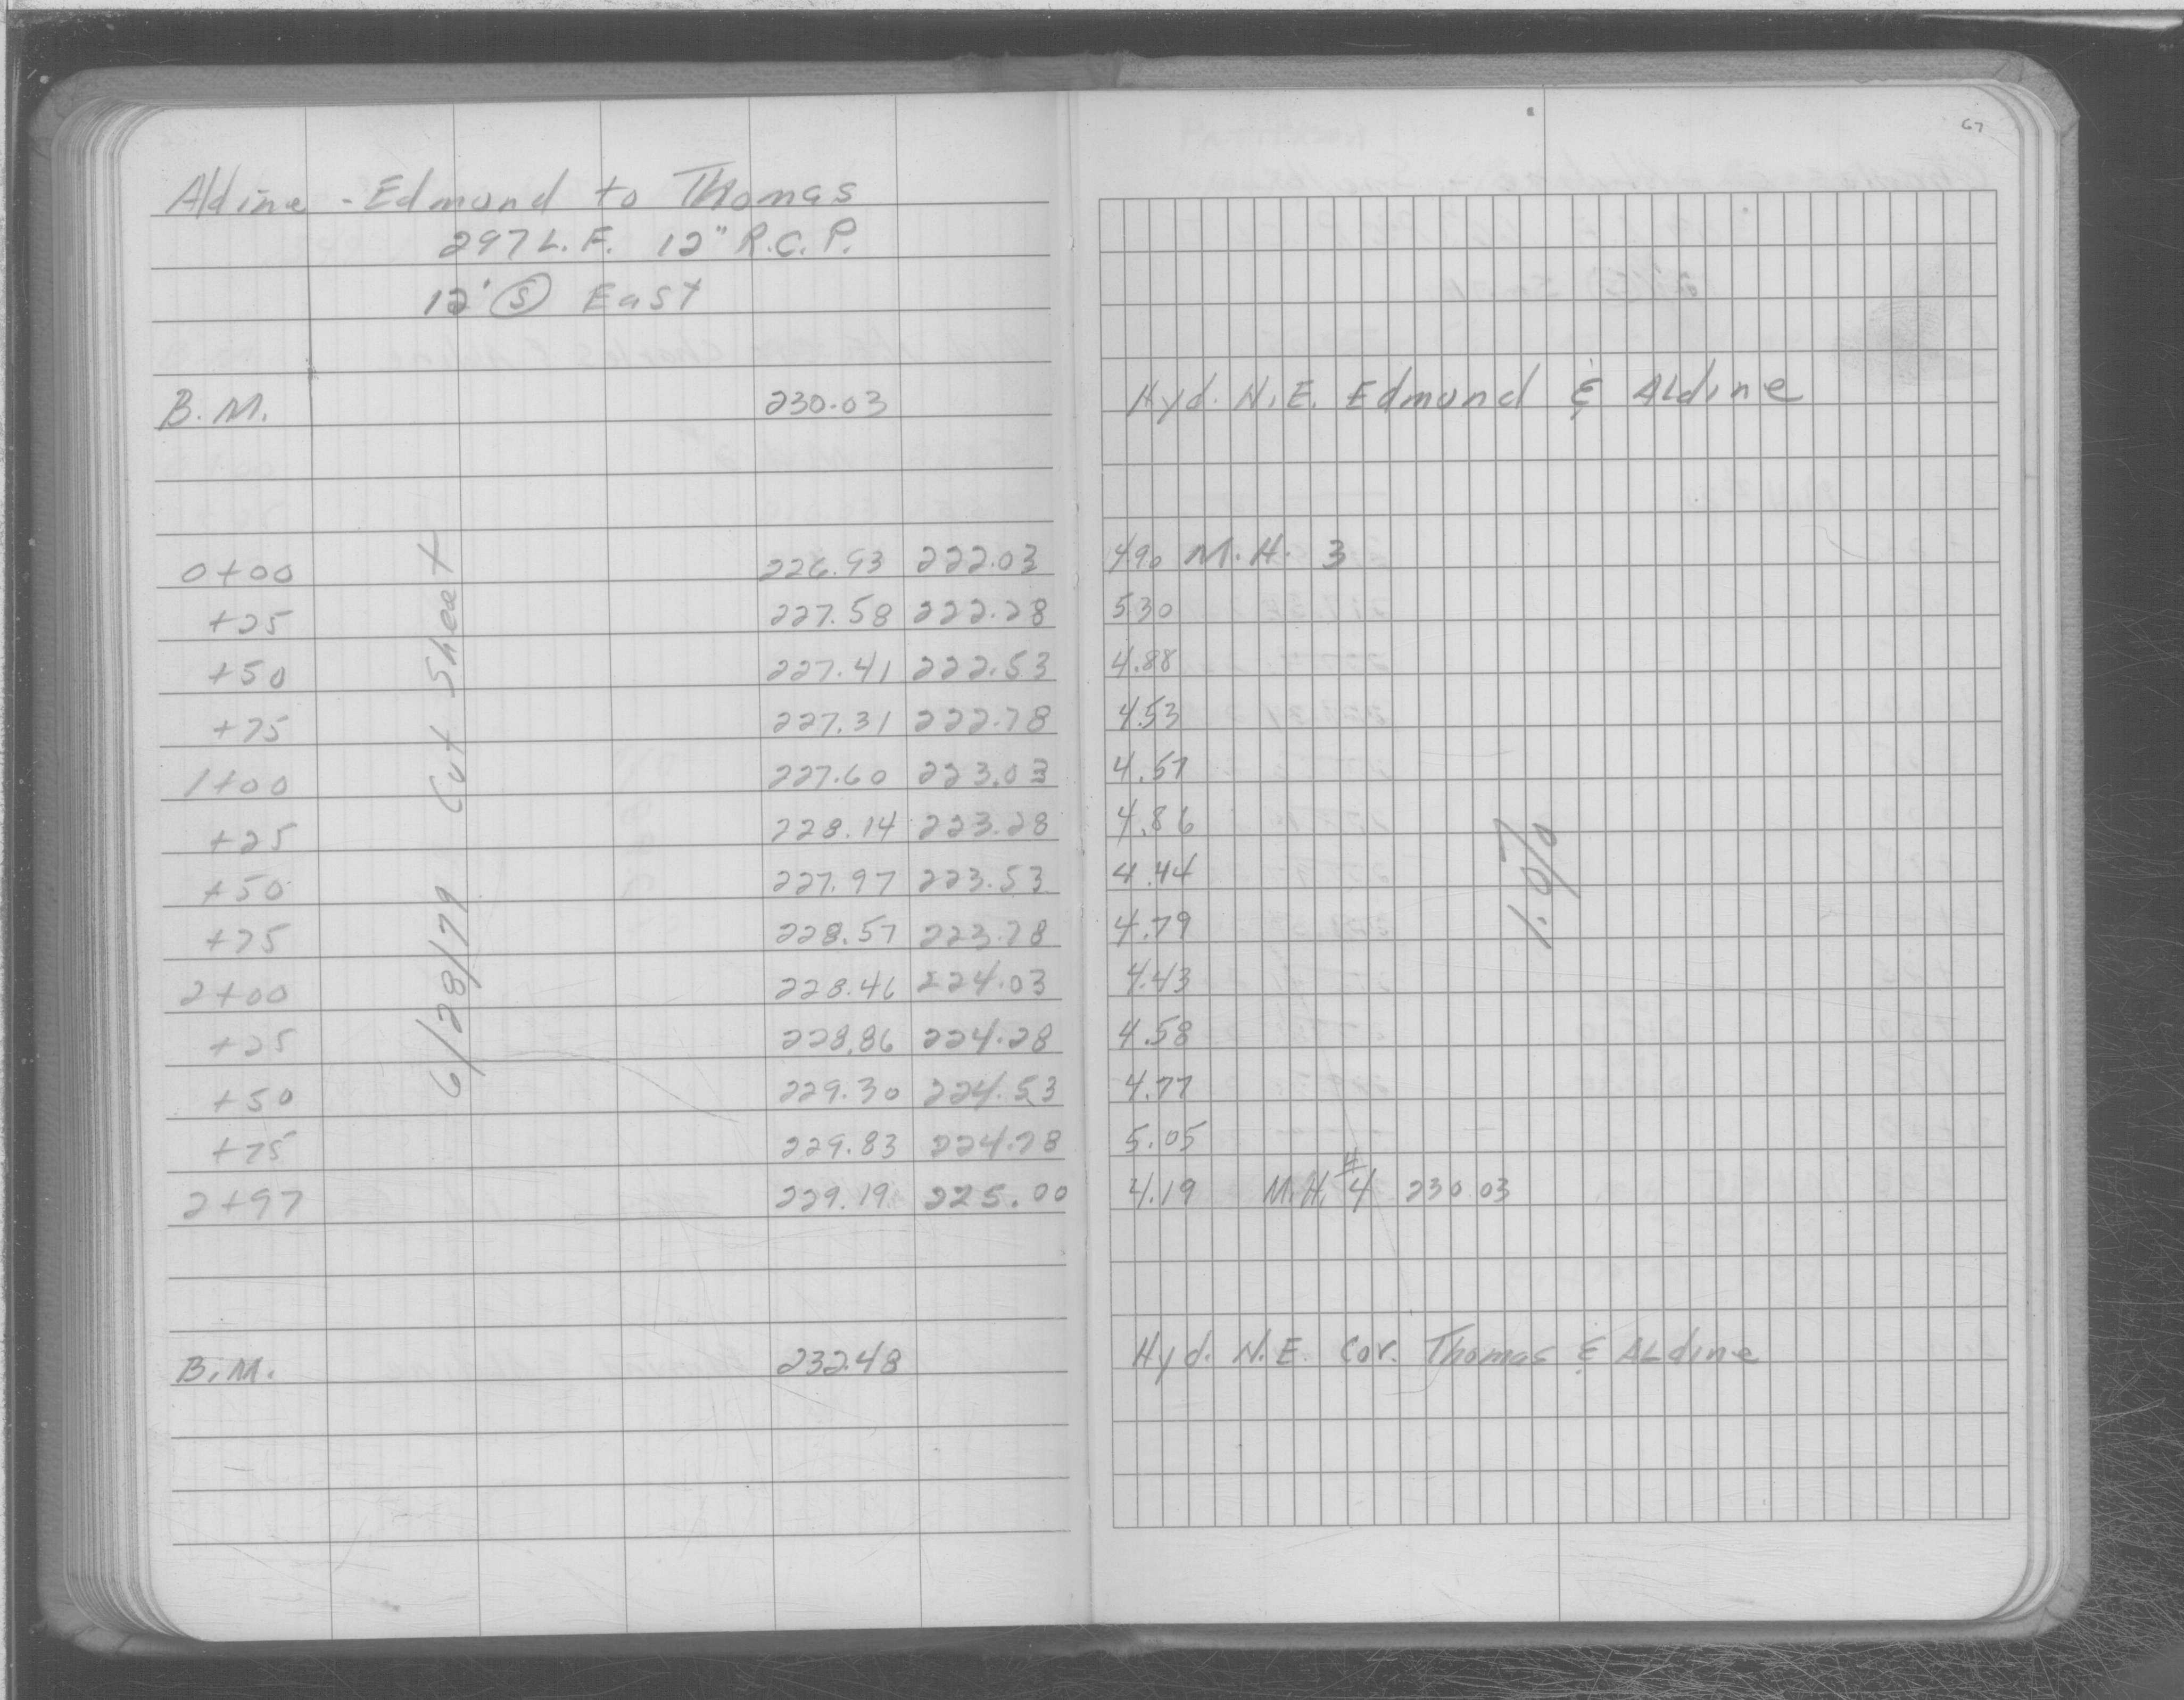 67
Aldine - Edmund to Thomas
297 L.F. 12" R.C.P.
12' (S) East
B.M. 230.03 Hyd. N.E. Edmund & Aldine
0+00 226.93 222.03 4.90 M.H. 3
+25 227.58 222.28 5.30
+50 227.41 222.53 4.88
+75 227.31 222.78 4.53
1+00 227.60 223.03 4.57
+25 228.14 223.28 4.86
+50 227.97 223.53 4.44
+75 228.57 223.78 4.79
2+00 228.46 224.03 4.43
+25 228.86 224.28 4.58
+50 229.30 224.53 4.77
+75 229.83 224.78 5.05
2+97 229.19 225.00 4.19 M.H. #4 230.03
6/28/79 Cut Sheet
1.0%
B.M. 232.48 Hyd. N.E. Cor. Thomas & Aldine